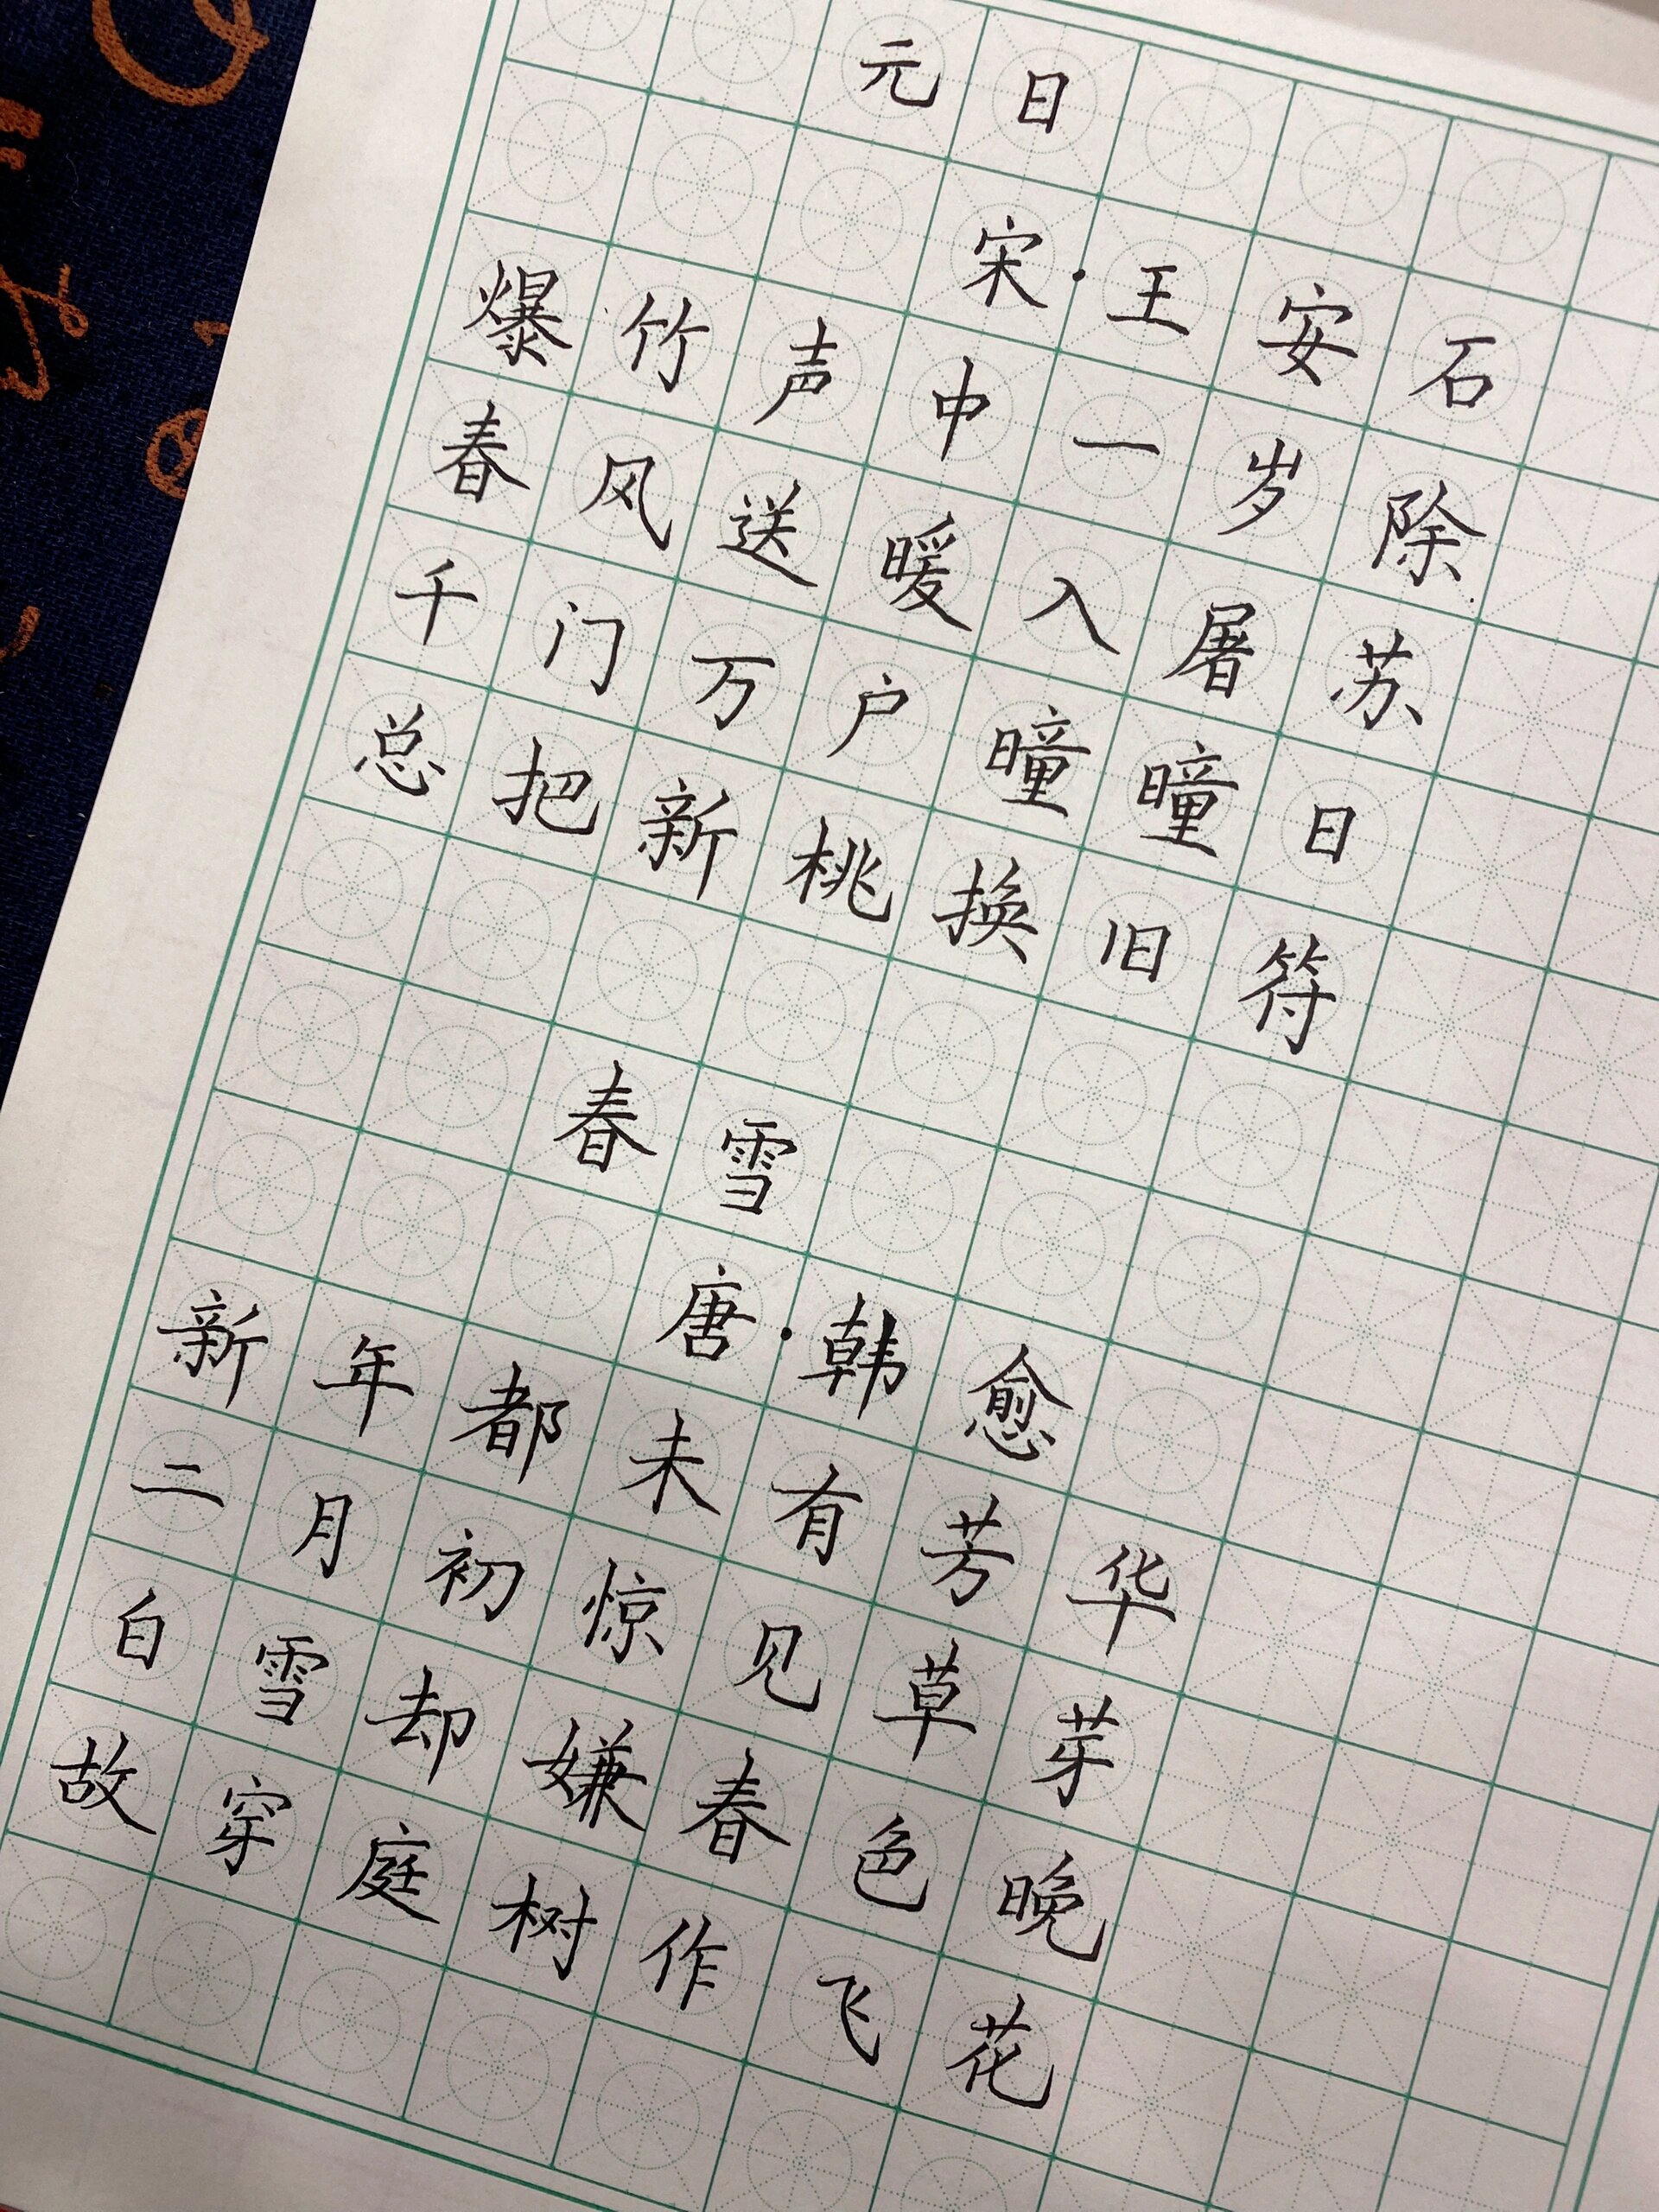 元日
宋·王安石
爆竹声中一岁除
春风送暖入屠苏
千门万户曈曈日
总把新桃换旧符
春雪
唐·韩愈
新年都未有芳华
二月初惊见草芽
白雪却嫌春色晚
故穿庭树作飞花